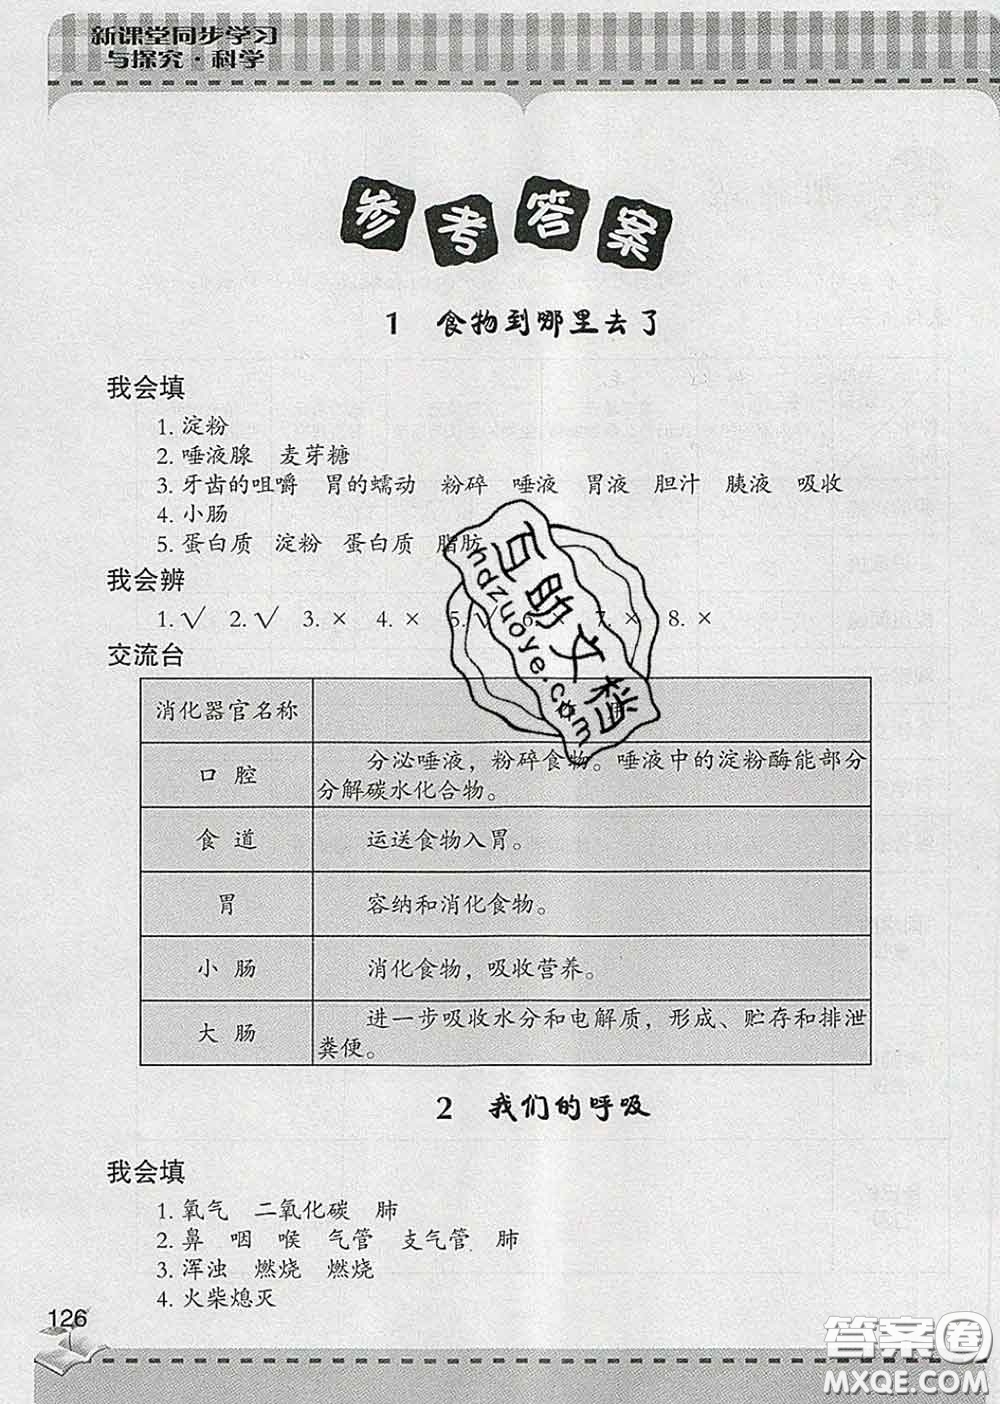 新课堂同步学习
与探究·科学
参考答案
1 食物到哪里去了
我会填
1. 淀粉
2. 唾液腺 麦芽糖
3. 牙齿的咀嚼 胃的蠕动 粉碎 唾液 胃液 胆汁 胰液 吸收
4. 小肠
5. 蛋白质 淀粉 蛋白质 脂肪
我会辨
1. √ 2. √ 3. × 4. × 5. √ 6. 7. × 8. ×
交流台
消化器官名称
口 腔 分泌唾液，粉碎食物。唾液中的淀粉酶能部分
分解碳水化合物。
食 道 运送食物入胃。
胃 容纳和消化食物。
小 肠 消化食物，吸收营养。
大 肠 进一步吸收水分和电解质，形成、贮存和排泄
粪便。
互助文档
hdzuoye.com
2 我们的呼吸
我会填
1. 氧气 二氧化碳 肺
2. 鼻 咽 喉 气管 支气管 肺
3. 浑浊 燃烧 燃烧
4. 火柴熄灭
126
答案圈
MXQE.COM